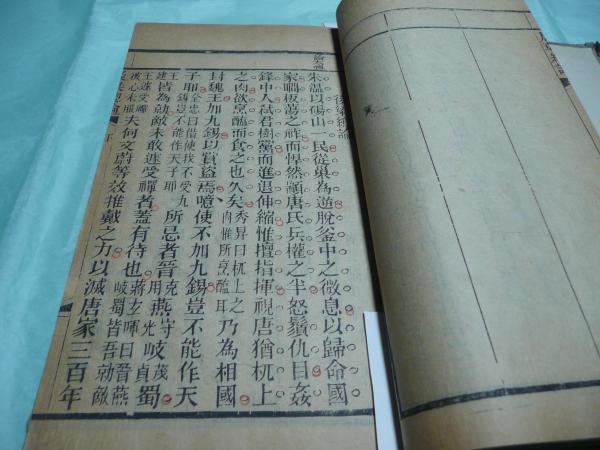 後梁總論
朱溫以碭山一民從巢為遊脫釜中之微息以歸命國
家嘔板蕩之時而悍然顓唐氏兵權之半怒鬚仇目姦
鋒中人弑君樹黨而進退伸縮惟擅指揮視唐猶机上
之肉欲烹醢而食之也久矣秀昇曰机上之肉惟所烹醢耳乃為相國
封魏王加九錫以賞盜焉噫使不加九錫豈不能作天
子耶全忠曰借使我不受九錫豈不能作天子耶所忌者晉克用燕守光岐茂貞蜀
王建皆為勍敵未敢遽受禪者蓋有待也蔣玄暉曰晉燕岐蜀皆吾勍敵
王遽受禪彼心未服夫何文蔚等效推戴之力以滅唐家三百年